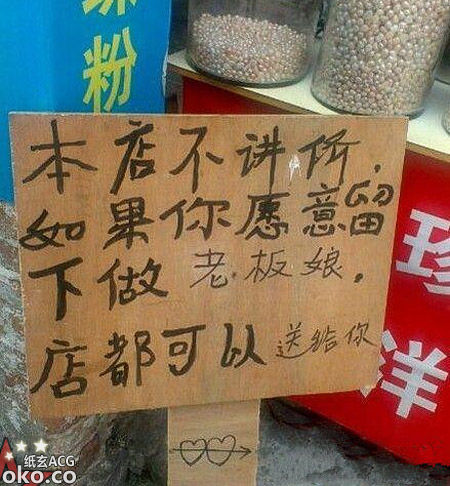 粉
本店不讲价.
如果你愿意留
下做老板娘.
店都可以送给你
珍
洋
纸玄ACG
oko.co